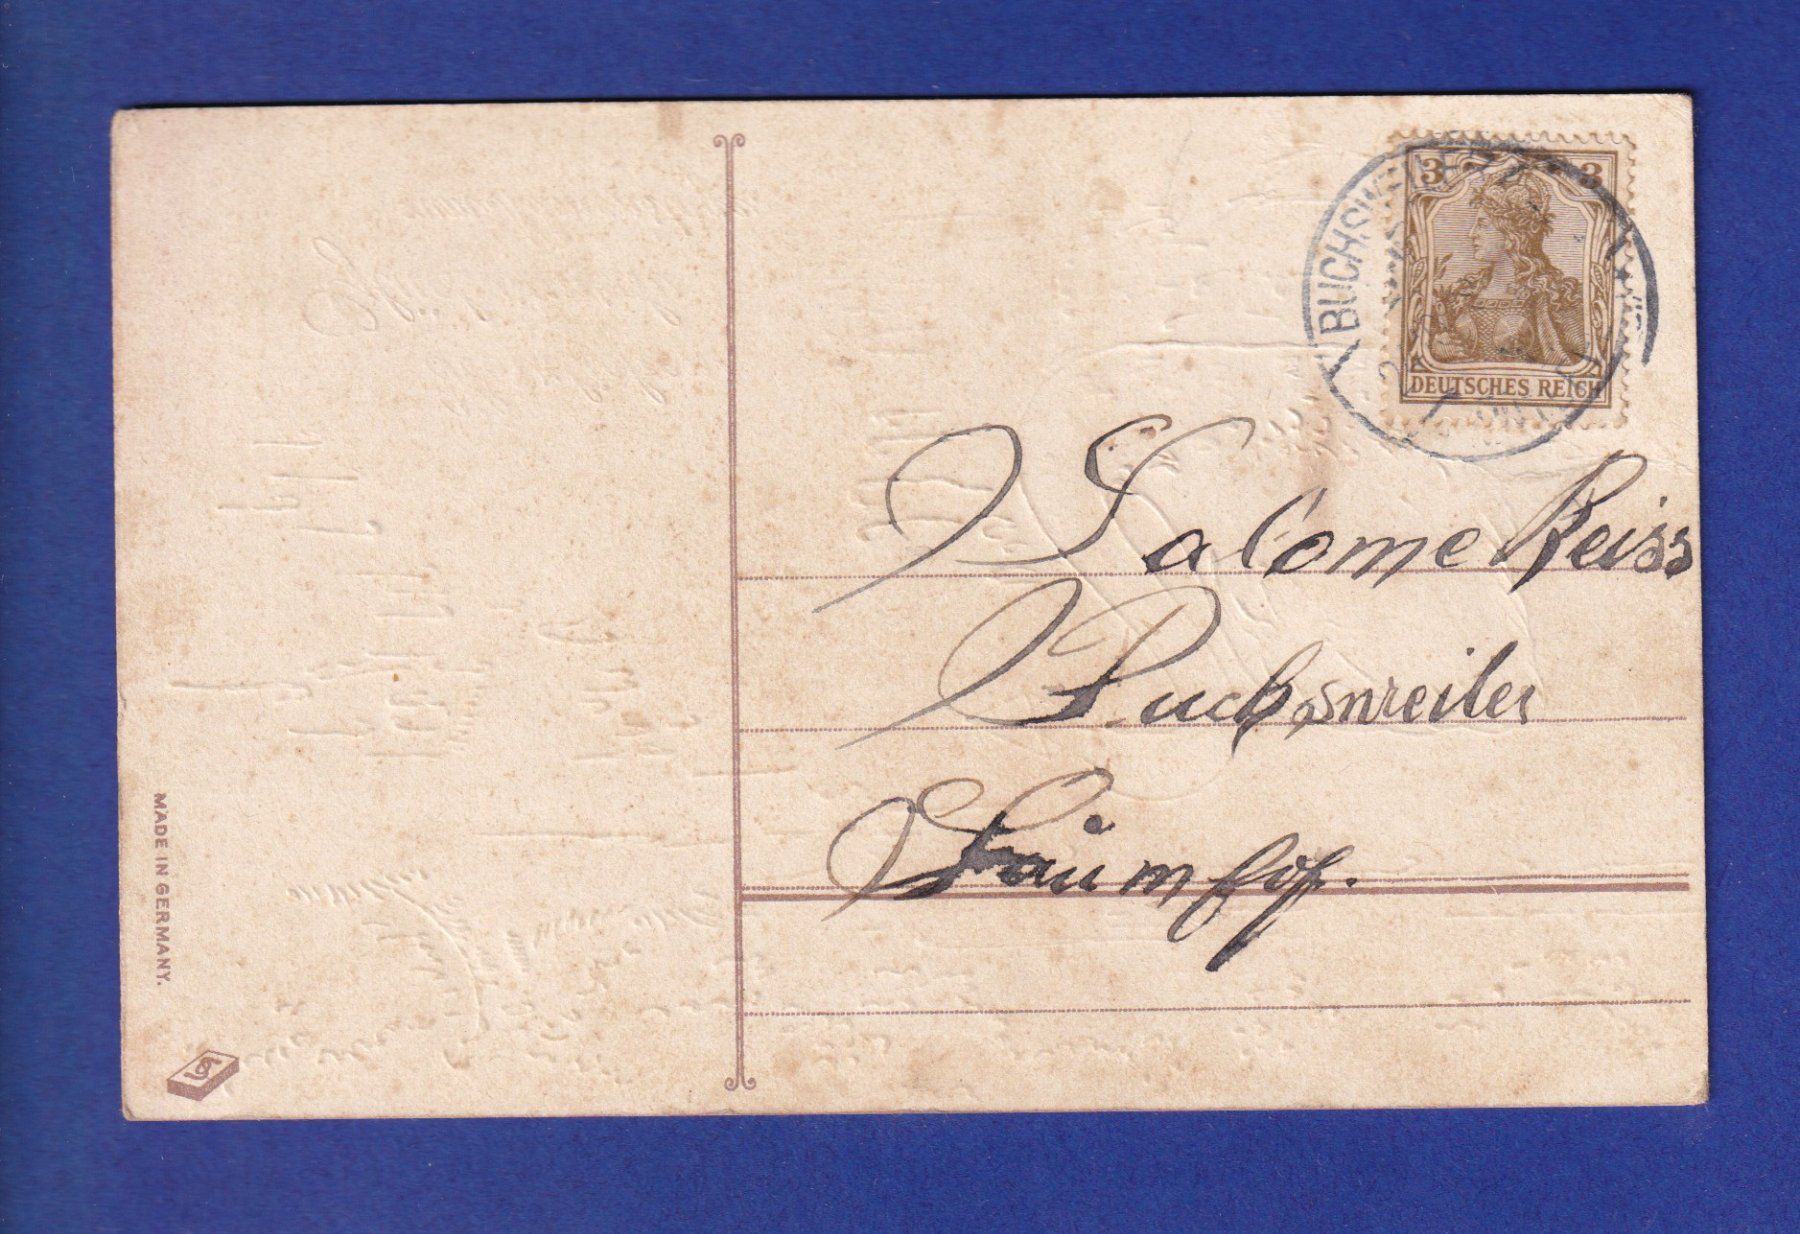 3 3
DEUTSCHES REICH
BUCHSW
Salome Reiss
Buchsweiler
MADE IN GERMANY.